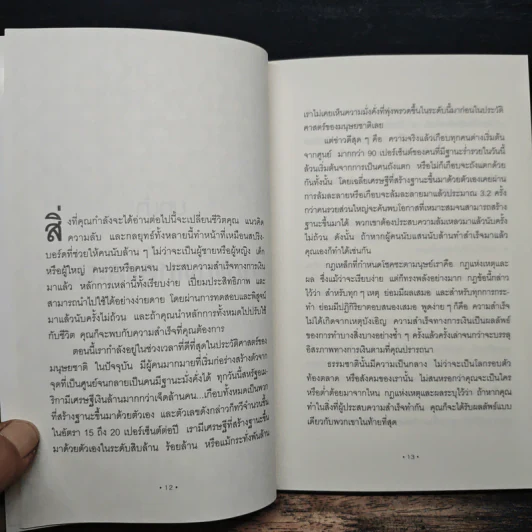 สิ่งที่คุณกำลังจะได้อ่านต่อไปนี้จะเปลี่ยนชีวิตคุณ แนวคิด
ความลับ และกลยุทธ์ทั้งหลายนี้ทำหน้าที่เหมือนสปริง-
บอร์ดที่ช่วยให้คนนับล้าน ๆ ไม่ว่าจะเป็นผู้ชายหรือผู้หญิง เด็ก
หรือผู้ใหญ่ คนรวยหรือคนจน ประสบความสำเร็จทางการเงิน
มาแล้ว หลักการเหล่านี้ทั้งเรียบง่าย เปี่ยมประสิทธิภาพ และ
สามารถนำไปใช้ได้อย่างง่ายดาย โดยผ่านการทดสอบและพิสูจน์
มาแล้วนับครั้งไม่ถ้วน และถ้าคุณนำหลักการทั้งหมดไปปรับใช้
กับชีวิต คุณก็จะพบกับความสำเร็จที่คุณต้องการ
ตอนนี้เรากำลังอยู่ในช่วงเวลาที่ดีที่สุดในประวัติศาสตร์ของ
มนุษยชาติ ในปัจจุบัน มีผู้คนมากมายที่เริ่มก่อร่างสร้างตัวจาก
จุดที่เป็นศูนย์จนกลายเป็นคนมีฐานะมั่งคั่งได้ ทุกวันนี้สหรัฐอเม-
ริกามีเศรษฐีเงินล้านมากกว่าเจ็ดล้านคน...เกือบทั้งหมดเป็นพวก
ที่สร้างฐานะขึ้นมาด้วยตัวเอง และตัวเลขดังกล่าวก็ทวีจำนวนขึ้น
ในอัตรา 15 ถึง 20 เปอร์เซ็นต์ต่อปี เรามีเศรษฐีที่สร้างฐานะขึ้น
มาด้วยตัวเองในระดับสิบล้าน ร้อยล้าน หรือแม้กระทั่งพันล้าน
• 12 •
เราไม่เคยเห็นความมั่งคั่งที่พุ่งพรวดขึ้นในระดับนี้มาก่อนในประวัติ
ศาสตร์ของมนุษยชาติเลย
แต่ข่าวดีสุด ๆ คือ ความจริงแล้วเกือบทุกคนต่างเริ่มต้น
จากศูนย์ มากกว่า 90 เปอร์เซ็นต์ของคนที่มีฐานะร่ำรวยในวันนี้
ล้วนเริ่มต้นจากการเป็นคนถังแตก หรือไม่ก็เกือบจะถังแตกด้วย
กันทั้งนั้น โดยเฉลี่ยเศรษฐีที่สร้างฐานะขึ้นมาด้วยตัวเองเคยผ่าน
การล้มละลายหรือเกือบจะล้มละลายมาแล้วประมาณ 3.2 ครั้ง
กว่าคนรวยส่วนใหญ่จะค้นพบโอกาสที่เหมาะสมจนสามารถสร้าง
ฐานะขึ้นมาได้ พวกเขาต้องประสบความล้มเหลวมาแล้วนับครั้ง
ไม่ถ้วน ดังนั้น ถ้าหากผู้คนนับแสนนับล้านทำสำเร็จมาแล้ว
คุณเองก็ทำได้เช่นกัน
กฎเหล็กที่กำหนดโชคชะตามนุษย์เราคือ กฎแห่งเหตุและ
ผล ซึ่งแม้ว่าจะเรียบง่าย แต่ก็ทรงพลังอย่างมาก กฎข้อนี้กล่าว
ไว้ว่า สำหรับทุก ๆ เหตุ ย่อมมีผลเสมอ และสำหรับทุกการกระ-
ทำ ย่อมมีปฏิกิริยาตอบสนองเสมอ พูดง่าย ๆ ก็คือ ความสำเร็จ
ไม่ได้เกิดจากเหตุบังเอิญ ความสำเร็จทางการเงินเป็นผลลัพธ์
ของการทำบางสิ่งบางอย่างซ้ำ ๆ ครั้งแล้วครั้งเล่าจนกว่าจะบรรลุ
อิสรภาพทางการเงินตามที่คุณปรารถนา
ธรรมชาตินั้นมีความเป็นกลาง ไม่ว่าจะเป็นโลกของเรา
ท้องตลาด หรือสังคมของเรานั้น ไม่สนหรอกว่าคุณจะเป็นใคร
หรือต่ำต้อยมาจากไหน กฎแห่งเหตุและผลระบุไว้ว่า ถ้าหากคุณ
ทำในสิ่งที่ผู้ประสบความสำเร็จทำกัน คุณก็จะได้รับผลลัพธ์แบบ
เดียวกับพวกเขาในท้ายที่สุด
• 13 •